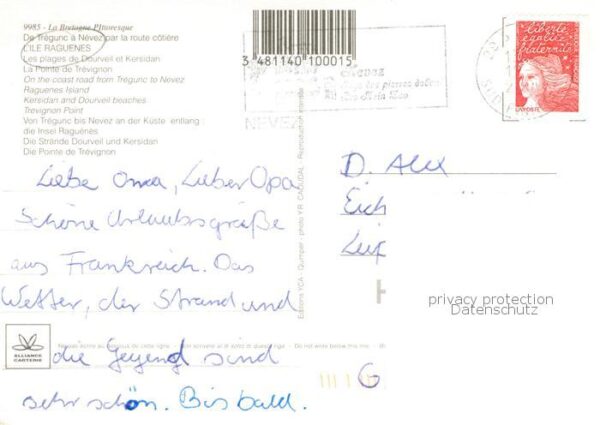 9985 - La Bretagne Pittoresque
De Trégunc à Névez par la route côtière
L'ILE RAGUENES
Les plages de Dourveil et Kersidan
La Pointe de Trévignon
On the coast road from Trégunc to Nevez
Raguenes Island
Kersidan and Dourveil beaches
Trevignon Point
Von Trégunc bis Nevez an der Küste entlang :
die Insel Raguenès
Die Strände Dourveil und Kersidan
Die Pointe de Trévignon
3 481140 100015
NEVEZ
liberté
égalité
fraternité
LA POSTE
Liebe Oma, Lieber Opa
Schöne Urlaubsgrüße
aus Frankreich. Das
Wetter, der Strand und
die Gegend sind
sehr schön. Bis bald.
Editions YCA - Quimper - photo Y.R. CAOUDAL - Reproduction interdite
D. Alex
Eich
G
privacy protection
Datenschutz
ALLIANCE
CARTERIE
Do not write below this line